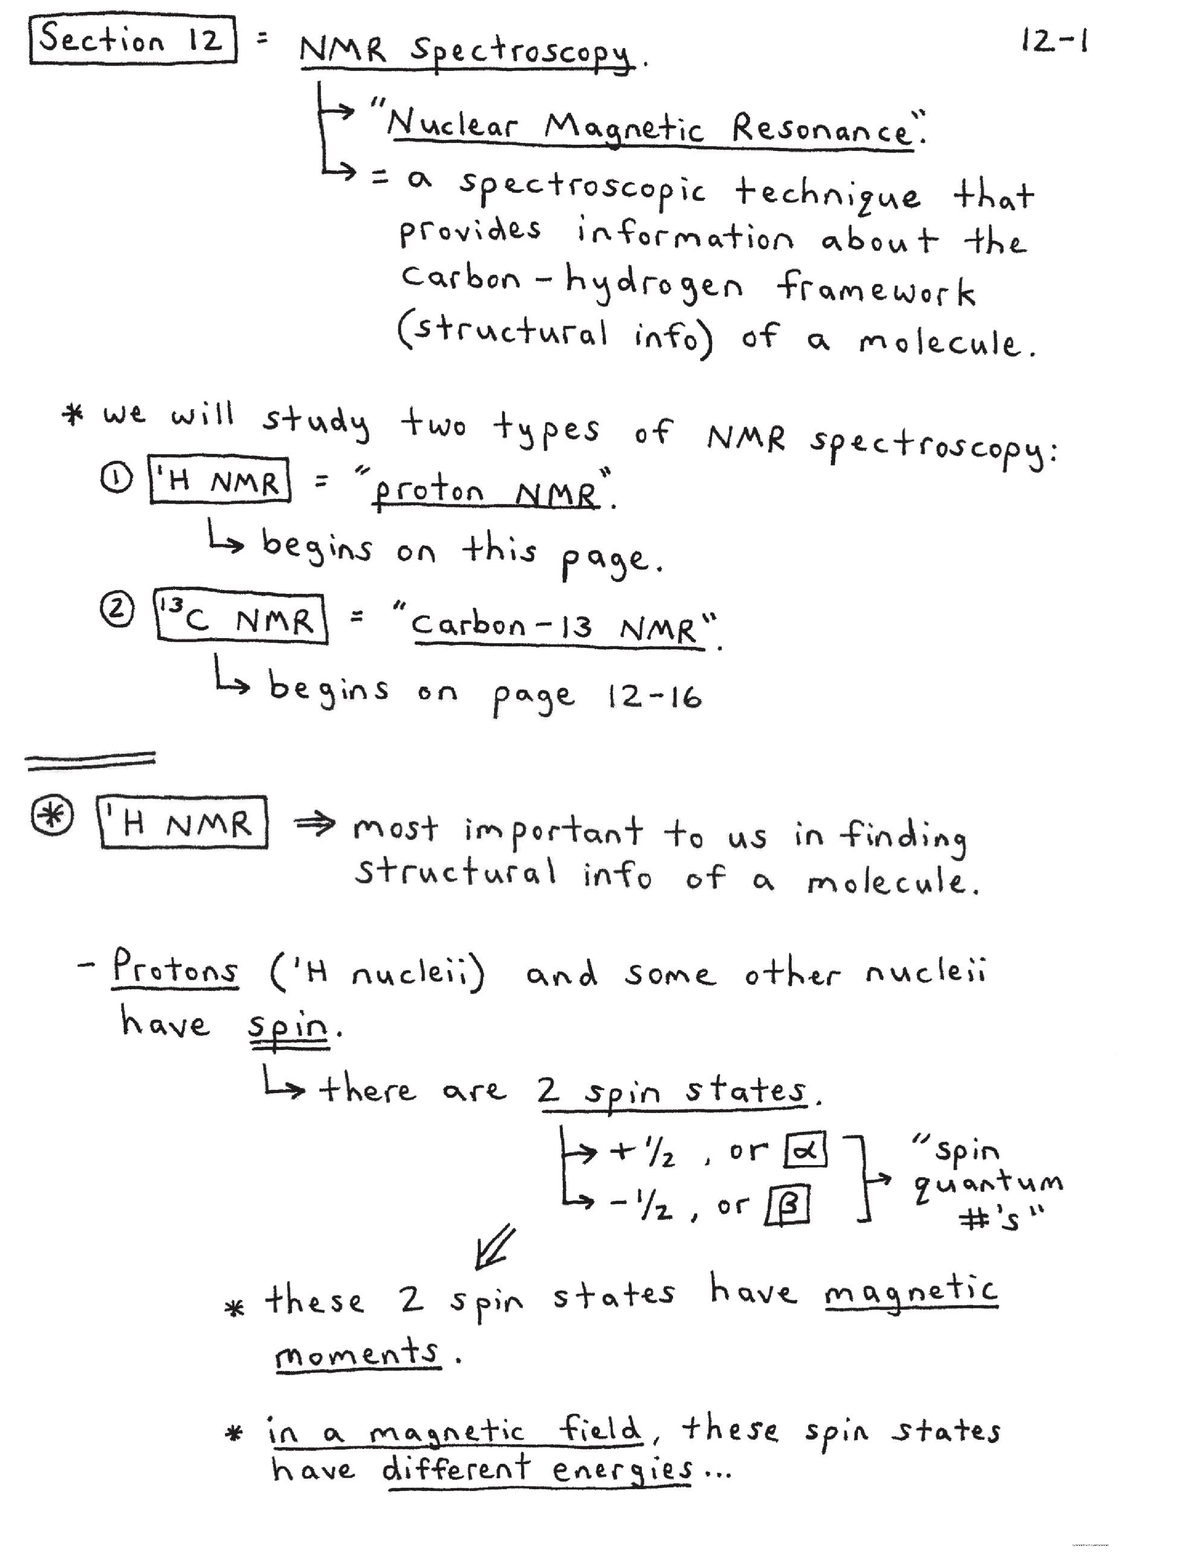 Section 12 = NMR Spectroscopy. 12-1
↳ "Nuclear Magnetic Resonance".
↳ = a spectroscopic technique that
provides information about the
carbon-hydrogen framework
(structural info) of a molecule.
* we will study two types of NMR spectroscopy:
① ¹H NMR = "proton NMR".
↳ begins on this page.
② ¹³C NMR = "carbon-13 NMR".
↳ begins on page 12-16
⊛ ¹H NMR ⇒ most important to us in finding
structural info of a molecule.
- Protons (¹H nucleii) and some other nucleii
have spin.
↳ there are 2 spin states.
↳ +1/2, or α
↳ -1/2, or β
→ "spin
quantum
#'s"
* these 2 spin states have magnetic
moments.
* in a magnetic field, these spin states
have different energies...